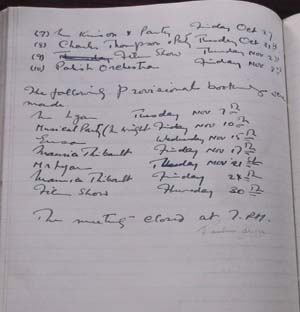 (7) Mr Kinson & Party Friday Oct 27
(8) Charles Thompson & Pty Tuesday Oct 31st
(9) Film Show Thursday Nov 2nd
(10) Polish Orchestra Friday Nov 3rd
The following Provisional bookings were
made.
Mr Lyan Tuesday Nov 7th
Musical Party (Mr Wright) Friday Nov 10th
Wednesday Nov 15th
Mansia Thibault Friday Nov 17th
Mr Lyan Tuesday Nov 21st
Mansia Thibault Friday 24th
Film Show Thursday 30th
The meeting closed at 7. P.M.